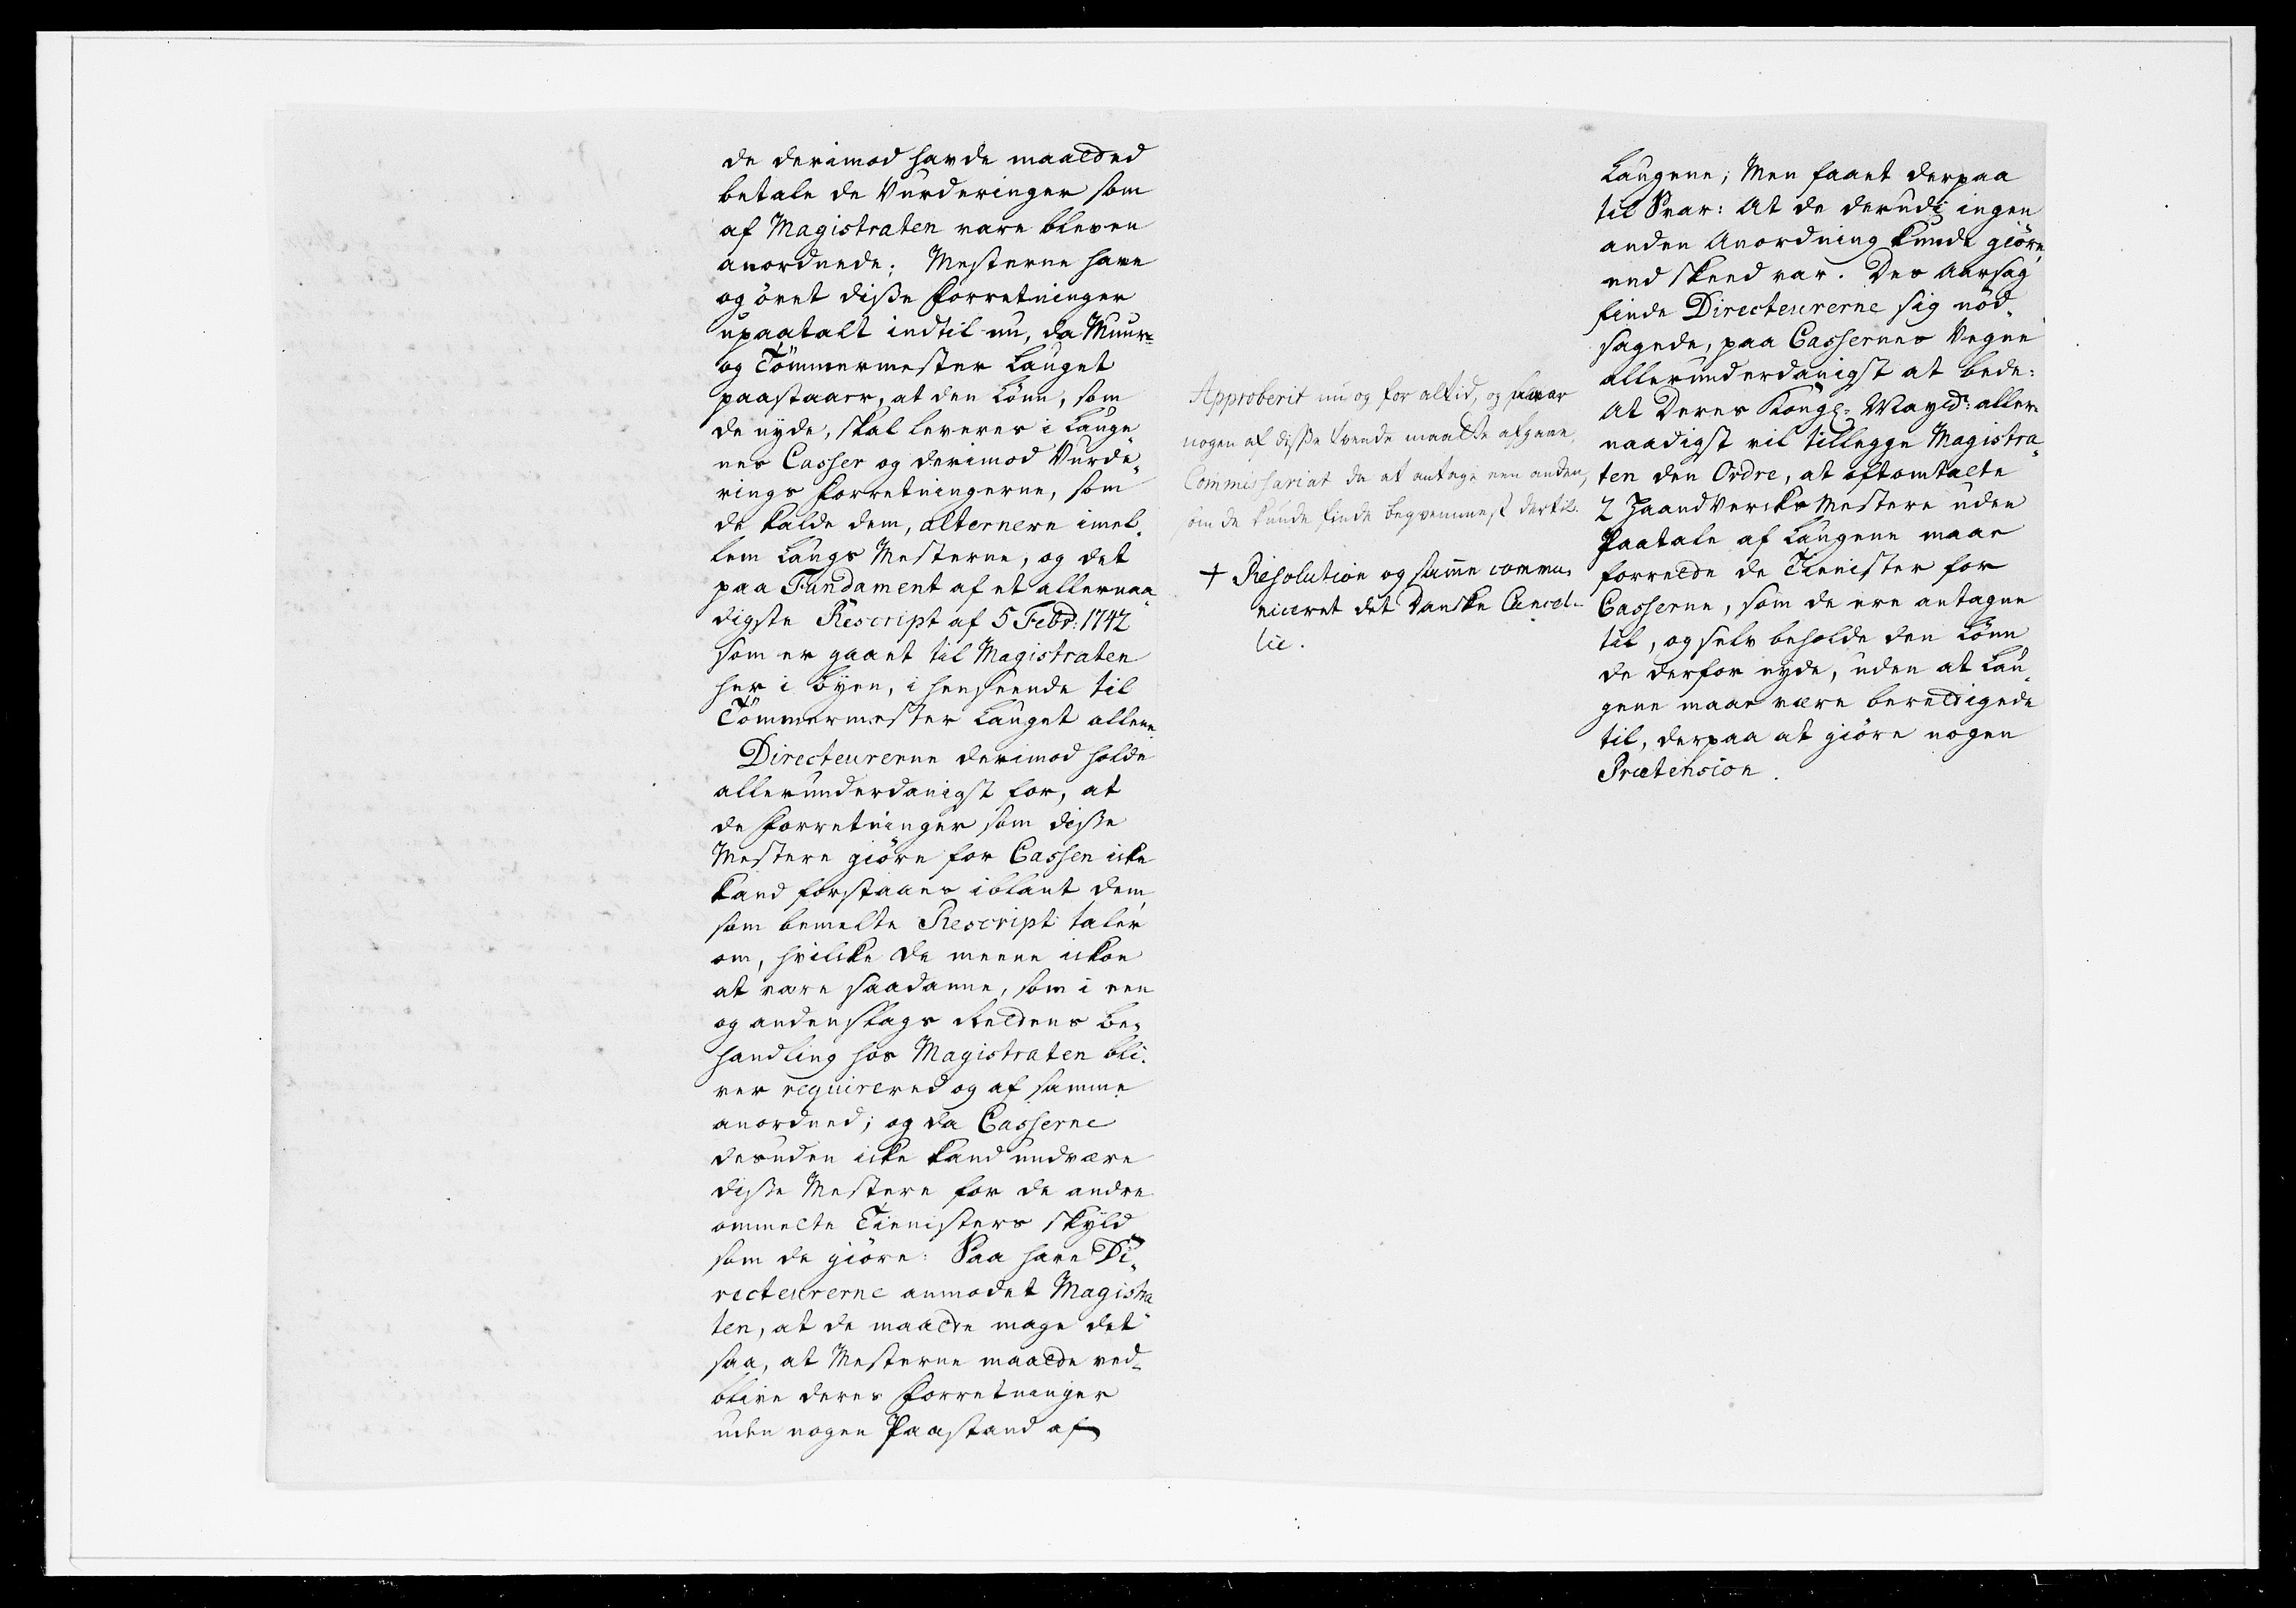 de derimod havde maatted
betale de Vurderinger som
af Magistraten vare bleven
anordnede; Mesterne have
og övet disse Forretninger
upaatalt indtil nu, da Muur-
og Tömmermester Lauget
paastaaer, at den Lönn, som
de nyde, skal leveres i Lauge
nes Casser og derimod Vurde-
rings Forretningerne, som
de kalde dem, alternere imel-
lem Laugs Mesterne, og det
paa Fundament af et allernaa-
digste Rescript af 5 Febr: 1742
som er gaaet til Magistraten
her i Byen, i henseende til
Tömmermester Lauget allene
Directeurerne derimod holde
allerunderdanigst for, at
de Forretninger som disse
Mestere giöre for Cassen icke
kand forstaaes iblant dem,
som bemelte Rescript taler
om, hvilcke de meene ickon
at være saadanne, som i een
og anden slags Rettens be-
handling hos Magistraten bli-
ver requirered og af samme
anordned; og da Casserne
desuden icke kand undvære
disse Mestere for de andre
ommelte Tienisters skyld
som de giöre: Saa have Di-
recteurerne anmodet Magistra-
ten, at de maatte mage det
saa, at Mesterne maatte ved-
blive deres Forretninger
uden nogen Paastand af
Approberit nu og for altid, og naar
nogen af disse tvende maatte afgaae,
Commissariat da at antage een anden,
som de kunde finde beqvemmest dertil.
+ Resolution og samme commu-
niceret det Danske Cancel-
lie.
Laugene; Men faaet derpaa
til Svar: At de derudi ingen
anden Anordning kunde giöre,
end skeed var. Des Aarsag
finde Directeurerne sig nöd-
sagede, paa Cassernes Vegne
allerunderdanigst at bede:
At Deres Kongl: Mayts: aller-
naadigst vil tillegge Magistra-
ten den Ordre, at oftomtalte
2 Haandvercks Mestere uden
Paatale af Laugene maae
forrette de Tienister for
Casserne, som de ere antagne
til, og selv beholde den Lönn
de derfor nyde, uden at Lau-
gene maae være berettigede
til, derpaa at giöre nogen
Prætension.